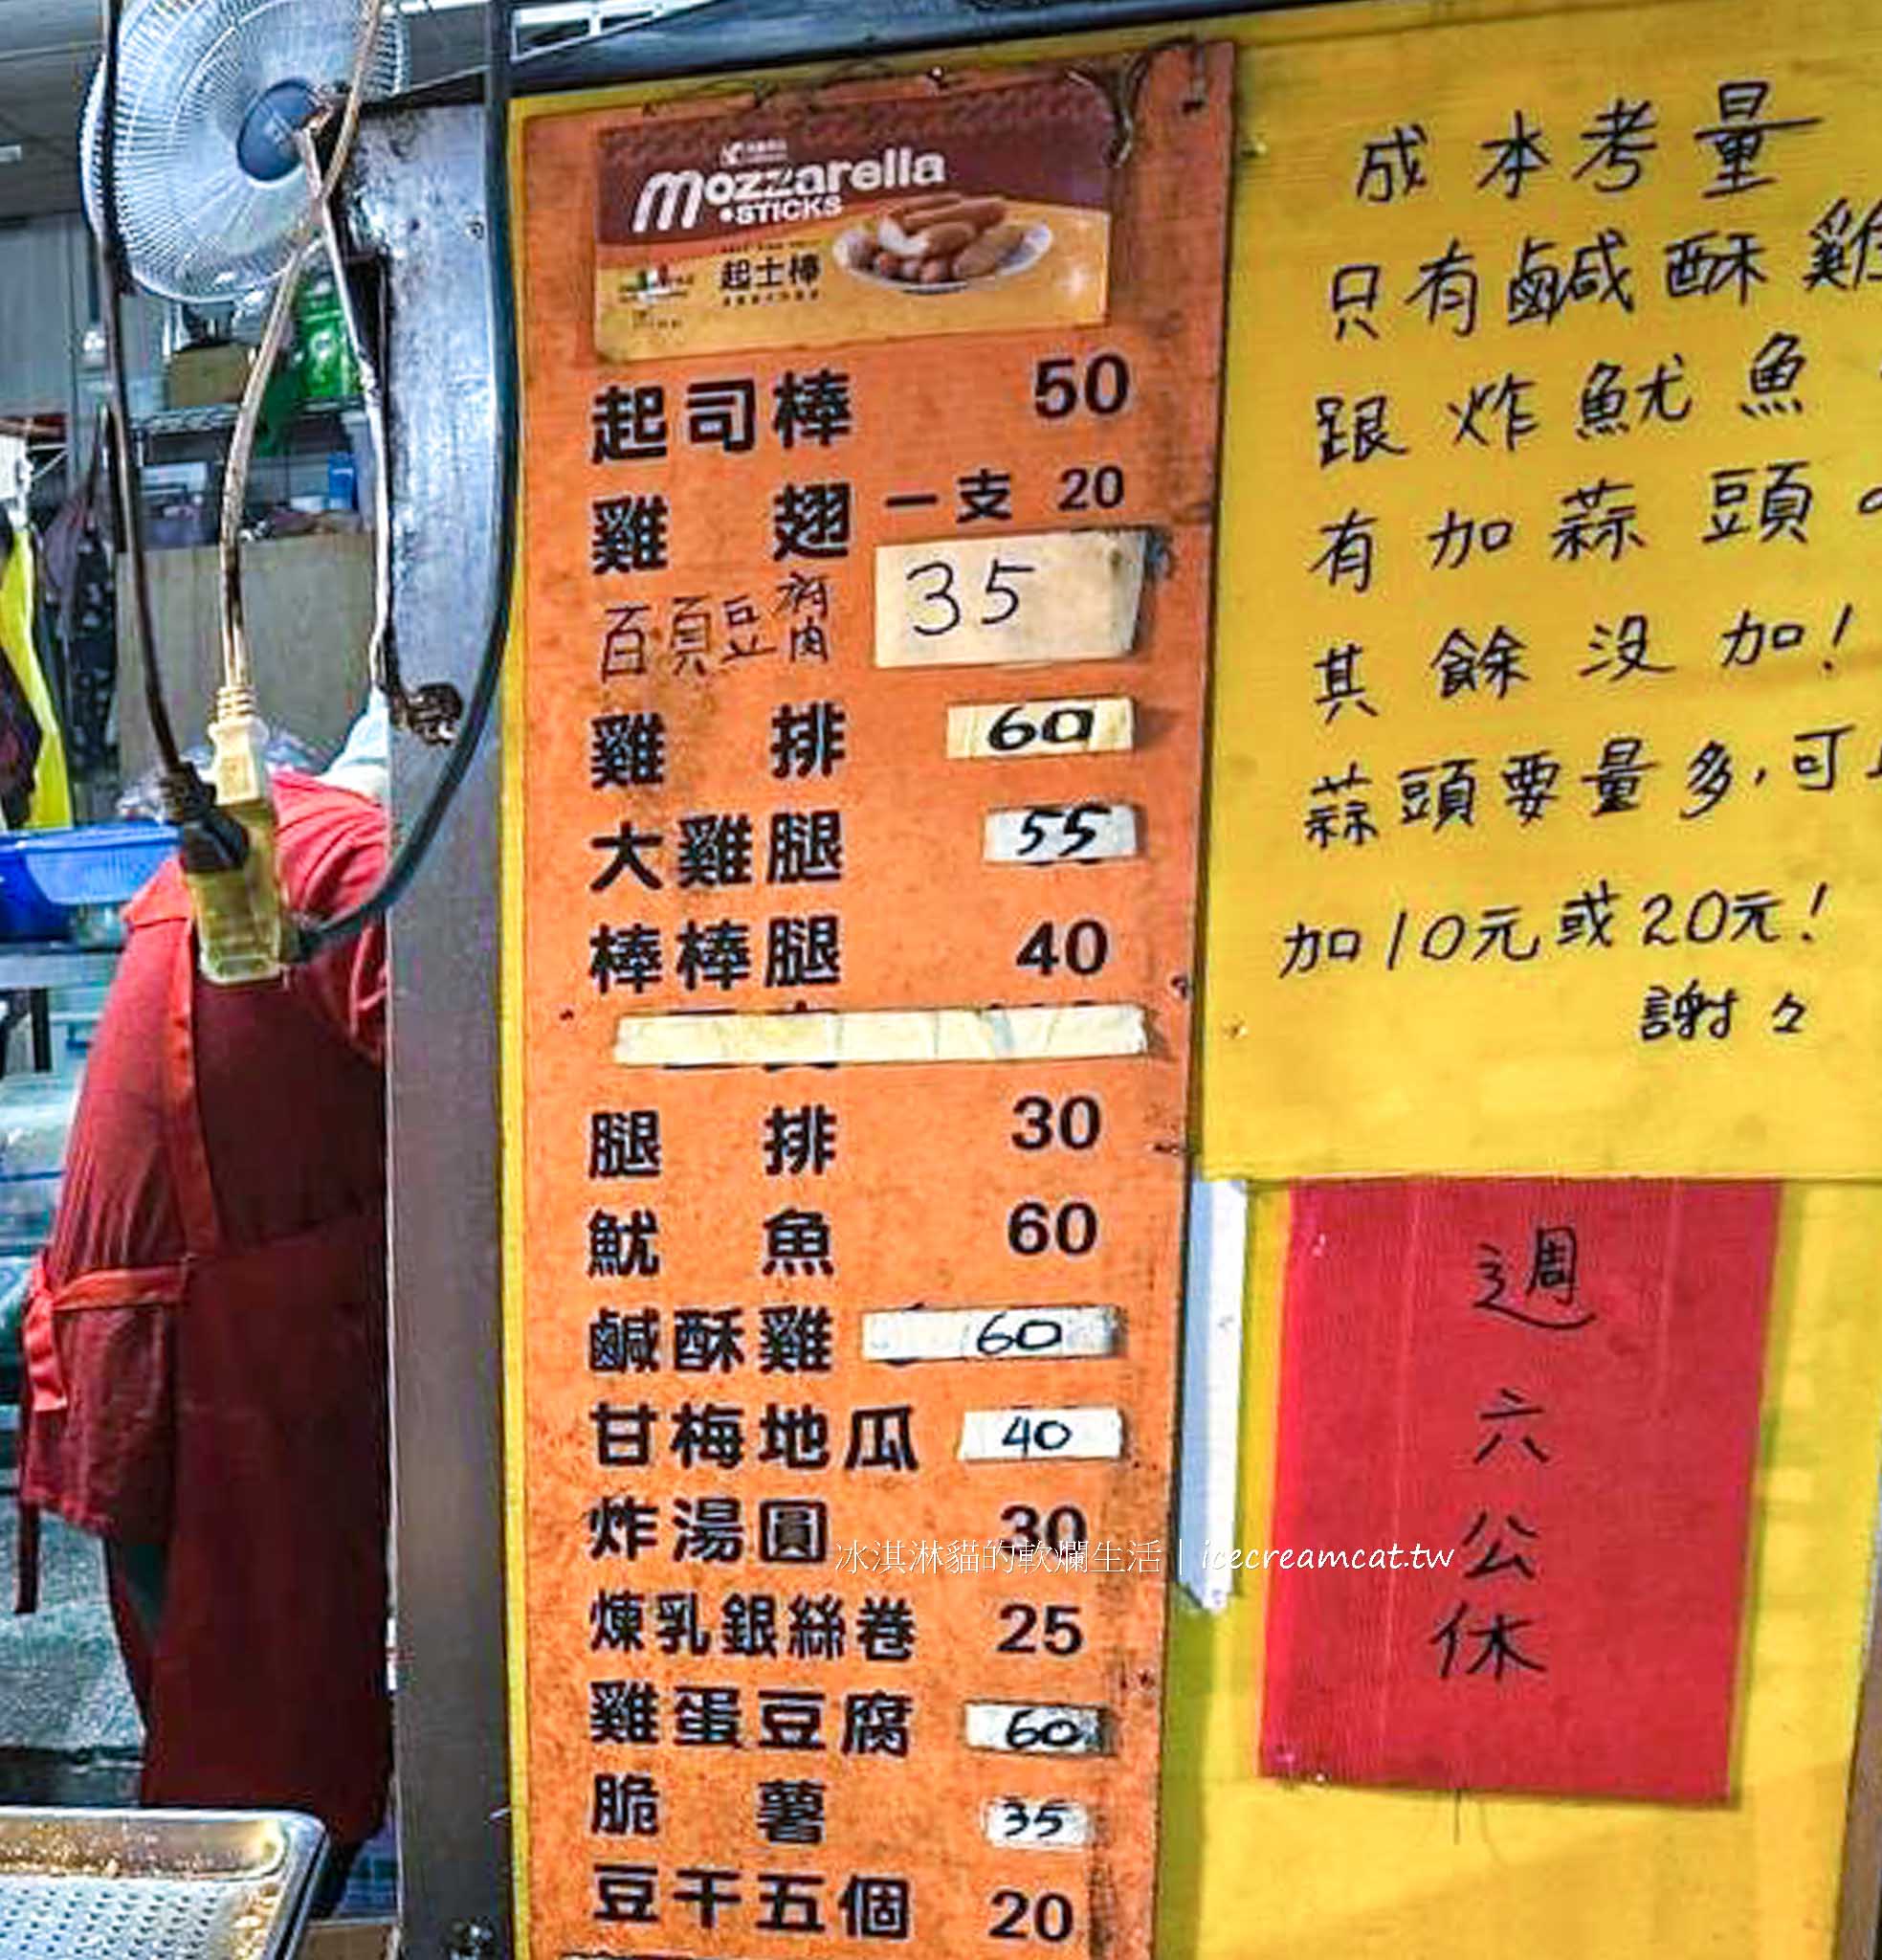 mozzarella
STICKS
起士棒
起司棒 50
雞翅 一支 20
百頁豆腐 35
雞排 60
大雞腿 55
棒棒腿 40
腿排 30
魷魚 60
鹹酥雞 60
甘梅地瓜 40
炸湯圓 30
煉乳銀絲卷 25
雞蛋豆腐 60
脆薯 35
豆干五個 20
成本考量
只有鹹酥雞
跟炸魷魚
有加蒜頭。
其餘沒加!
蒜頭要量多,可
加10元或20元!
謝々
週
六
公
休
冰淇淋貓的軟爛生活 | icecreamcat.tw